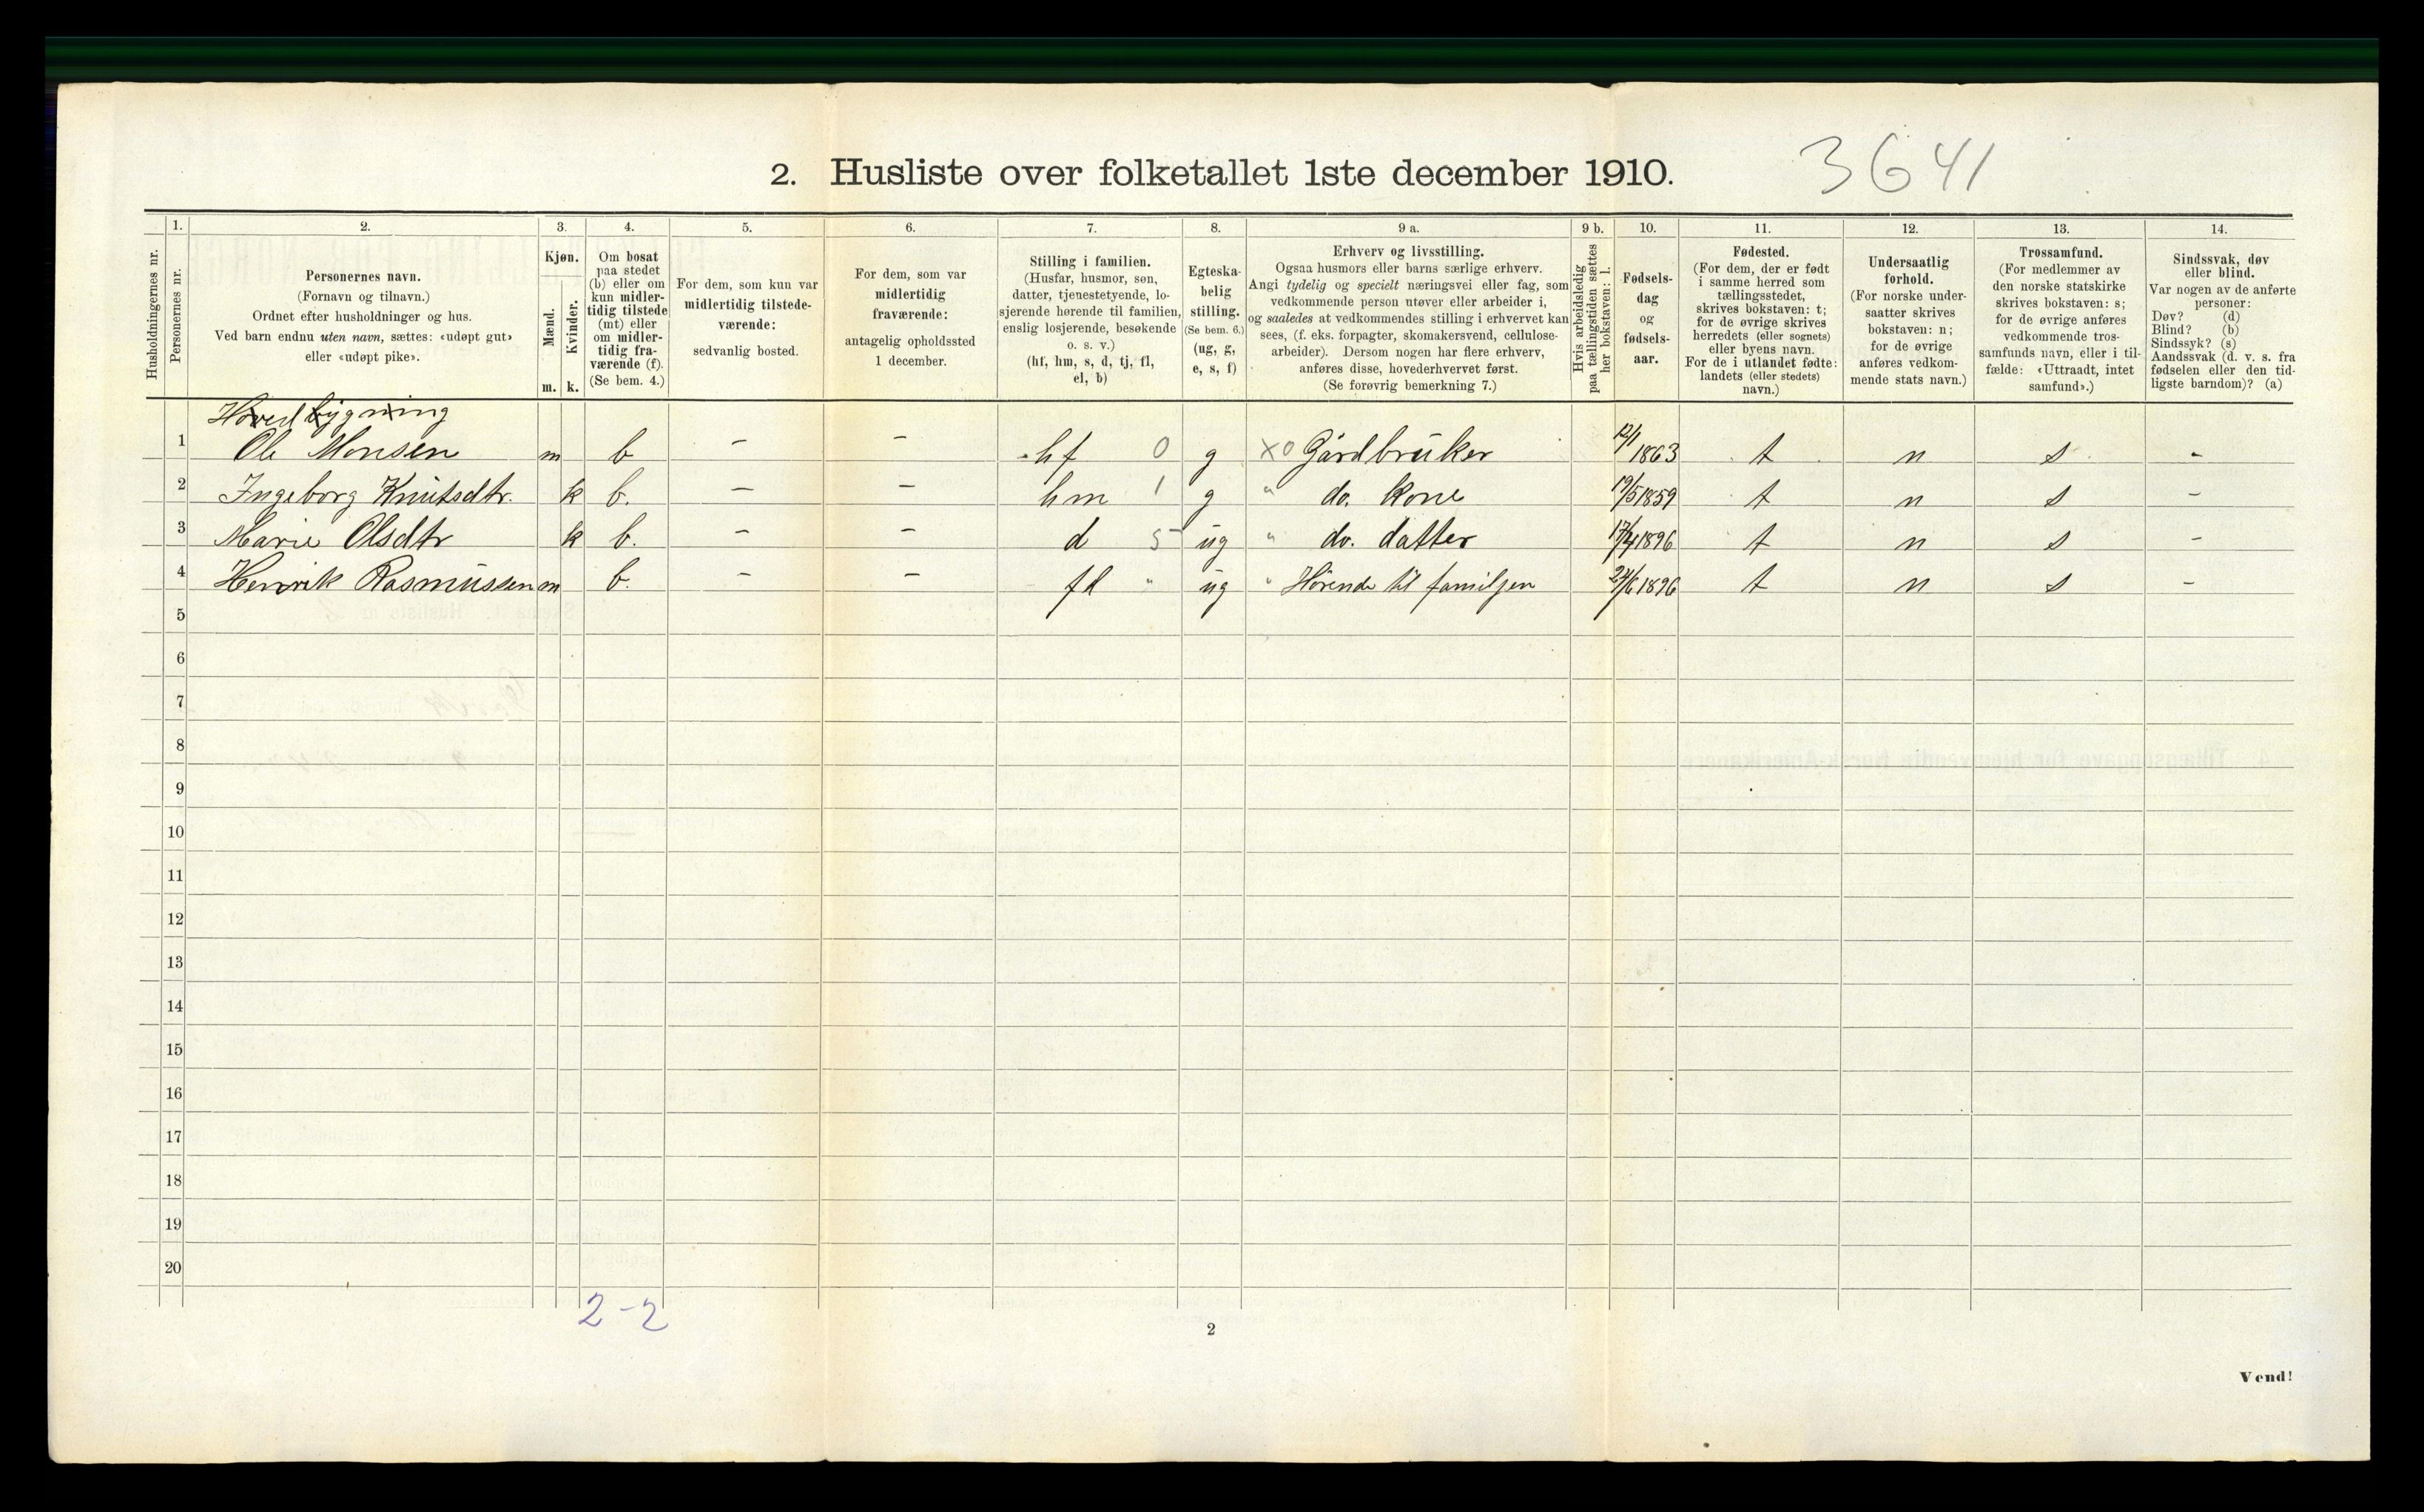 2. Husliste over folketallet 1ste december 1910.
3641
Husholdningernes nr.
1.
Personernes nr.
2.
Personernes navn.
(Fornavn og tilnavn.)
Ordnet efter husholdninger og hus.
Ved barn endnu uten navn, sættes: «udøpt gut»
eller «udøpt pike».
3.
Kjøn.
Mænd.
Kvinder.
m. k.
4.
Om bosat
paa stedet
(b) eller om
kun midler-
tidig tilstede
(mt) eller
om midler-
tidig fra-
værende (f).
(Se bem. 4.)
5.
For dem, som kun var
midlertidig tilstede-
værende:
sedvanlig bosted.
6.
For dem, som var
midlertidig
fraværende:
antagelig opholdssted
1 december.
7.
Stilling i familien.
(Husfar, husmor, søn,
datter, tjenestetyende, lo-
sjerende hørende til familien,
enslig losjerende, besøkende
o. s. v.)
(hf, hm, s, d, tj, fl,
el, b)
8.
Egteska-
belig
stilling.
(Se bem. 6.)
(ug, g,
e, s, f)
9 a.
Erhverv og livsstilling.
Ogsaa husmors eller barns særlige erhverv.
Angi tydelig og specielt næringsvei eller fag, som
vedkommende person utøver eller arbeider i,
og saaledes at vedkommendes stilling i erhvervet kan
sees, (f. eks. forpagter, skomakersvend, cellulose-
arbeider). Dersom nogen har flere erhverv,
anføres disse, hovederhvervet først.
(Se forøvrig bemerkning 7.)
9 b.
Hvis arbeidsledig
paa tællingstiden sættes
her bokstaven: l.
10.
Fødsels-
dag
og
fødsels-
aar.
11.
Fødested.
(For dem, der er født
i samme herred som
tællingsstedet,
skrives bokstaven: t;
for de øvrige skrives
herredets (eller sognets)
eller byens navn.
For de i utlandet fødte:
landets (eller stedets)
navn.)
12.
Undersaatlig
forhold.
(For norske under-
saatter skrives
bokstaven: n;
for de øvrige
anføres vedkom-
mende stats navn.)
13.
Trossamfund.
(For medlemmer av
den norske statskirke
skrives bokstaven: s;
for de øvrige anføres
vedkommende tros-
samfunds navn, eller i til-
fælde: «Uttraadt, intet
samfund».)
14.
Sindssvak, døv
eller blind.
Var nogen av de anførte
personer:
Døv? (d)
Blind? (b)
Sindssyk? (s)
Aandssvak (d. v. s. fra
fødselen eller den tid-
ligste barndom)? (a)
Hovedbygning
1 Ole Monsen m b – – hf 0 g X0 Gårdbruker 12/1 1863 t n s -
2 Ingeborg Knutsdtr. k b. – – hm 1 g " do. Kone 19/5 1859 t n s –
3 Marie Olsdtr k b. – – d 5 ug " do. datter 17/4 1896 t n s –
4 Henrik Rasmussen m b. – – fl " ug " Hørende til familjen 24/6 1896 t n s –
5
6
7
8
9
10
11
12
13
14
15
16
17
18
19
20
2-2
2
Vend!